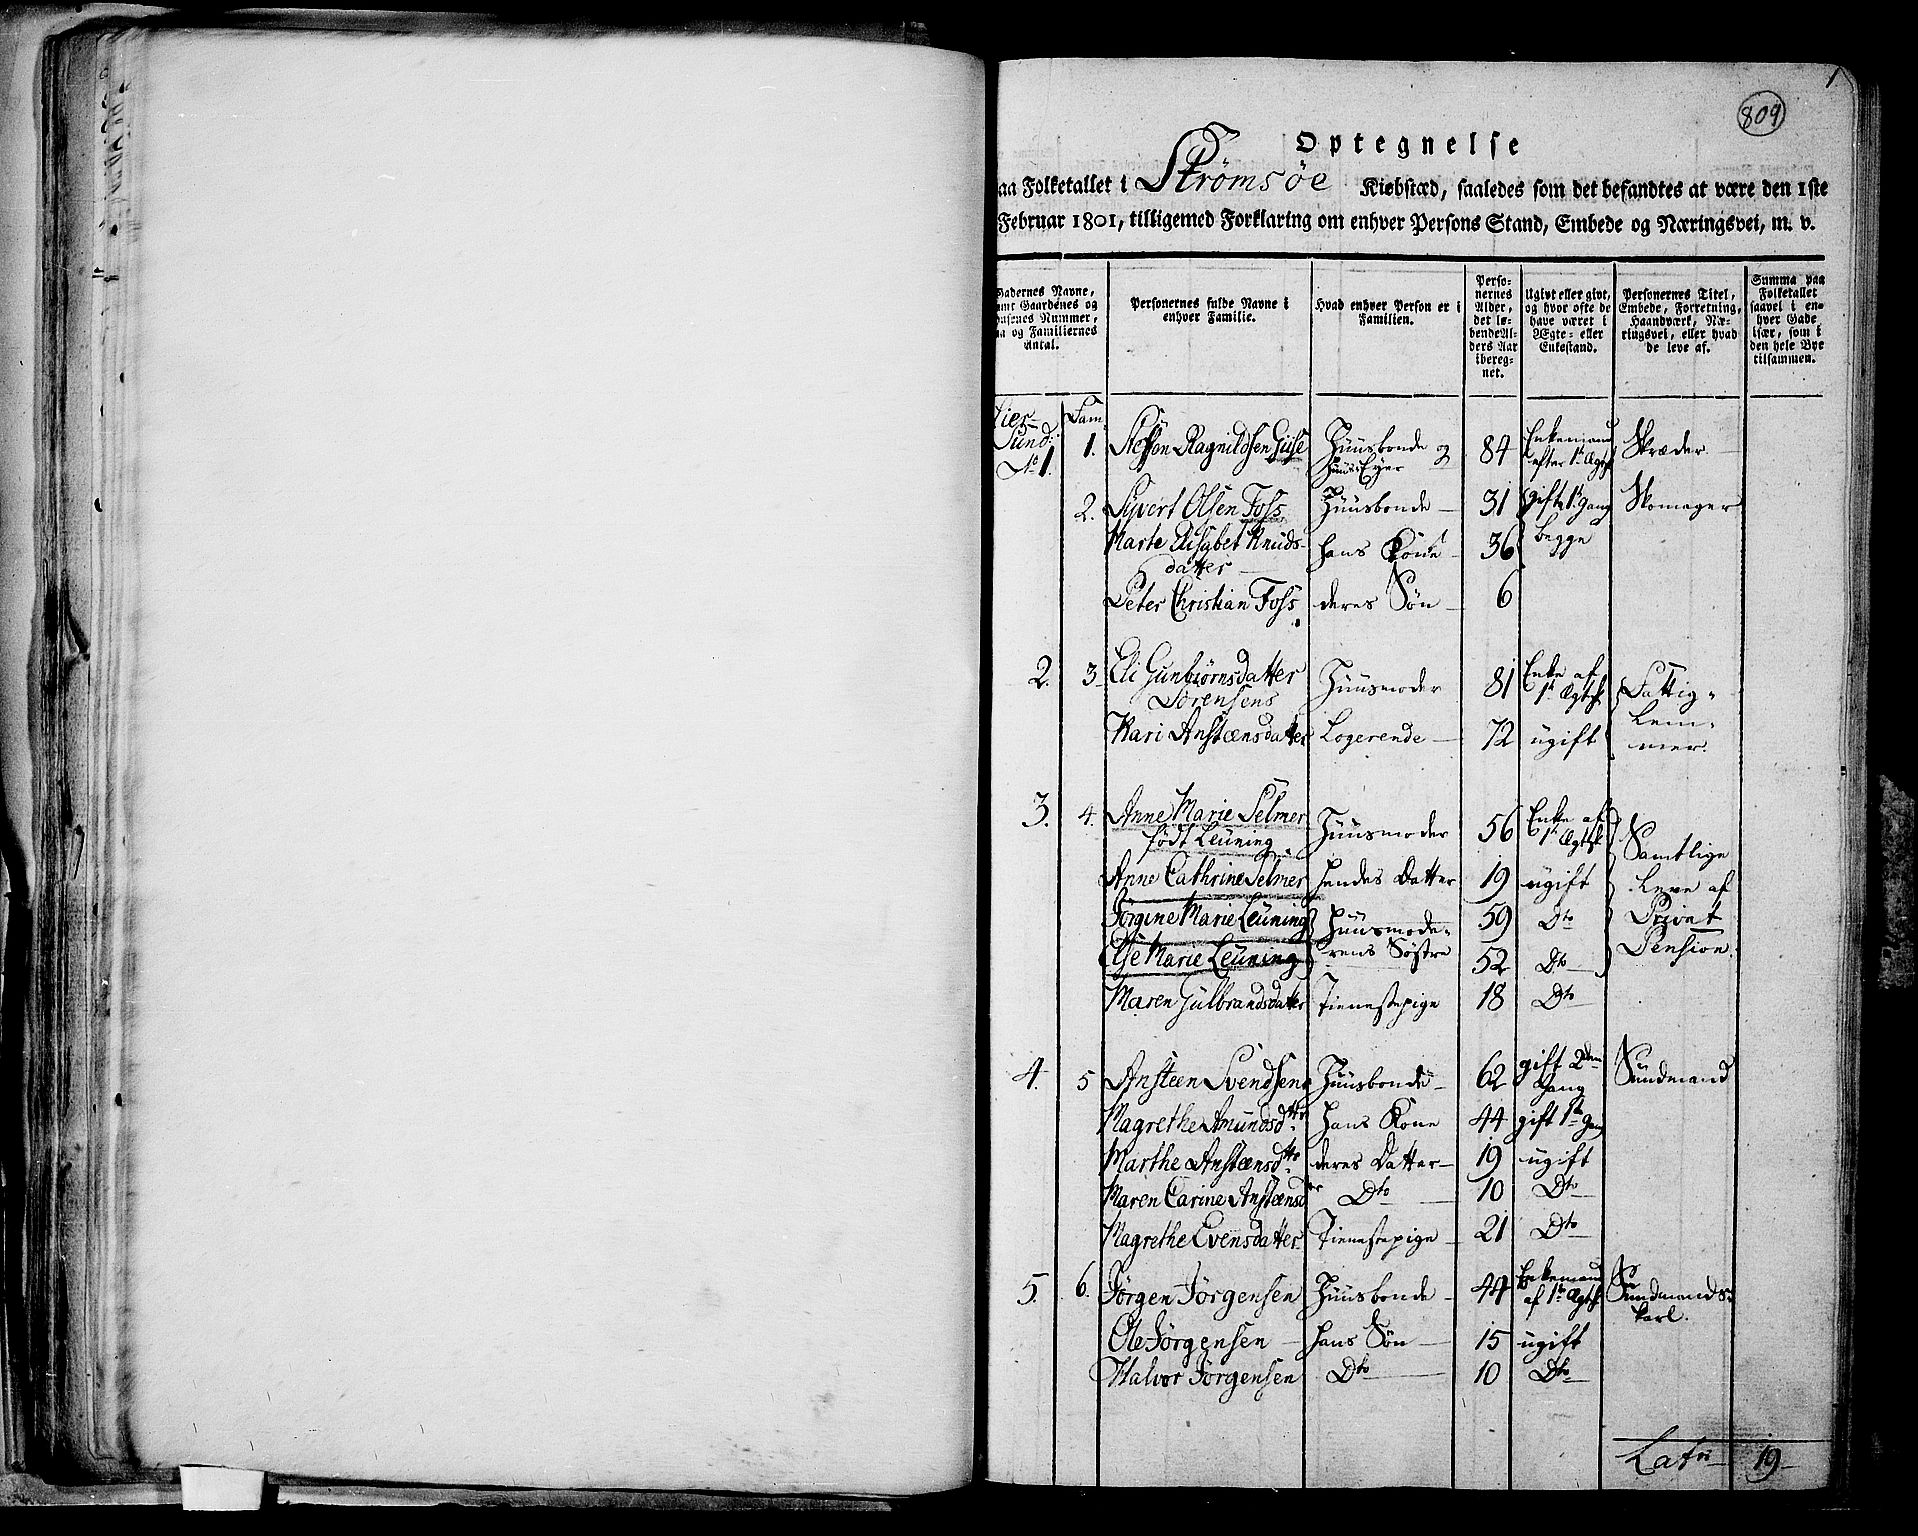 1
809
Optegnelse
aa Folketallet i Strømsøe Kiøbstæd, saaledes som det befandtes at være den 1ste
Februar 1801, tilligemed Forklaring om enhver Persons Stand, Embede og Næringsvei, m. v.
Gadernes Navne,
samt Gaardenes og
Husenes Nummer,
aa og Familiernes
Antal.
Personernes fulde Navne i
enhver Familie.
Hvad enhver Person er i
Familien.
Perso-
nernes
Alder,
det lø-
bende Al-
ders Aar
ibereg-
net.
Ugivt eller givt,
og hvor ofte de
have været i
Ægte- eller
Enkestand.
Personernes Titel,
Embede, Forretning,
Haandværk, Næ-
ringsvei, eller hvad
de leve af.
Summa paa
Folketallet
saavel i en-
hver Gade
især, som i
den hele Bye
tilsammen.
Sund: Fam
No 1. 1. Steffen Ragnildsen Huusbonde og Huus Eyer 84 Enkemand efter 1te Ægtsk Skræder
2. Syvert Olsen Foss Huusbonde 31 gift 1te Gang Skomager
Marte Elisabet Knuds- hans Kone 36 begge
datter
Peter Christian Foss deres Søn 6
2. 3. Eli Gunbiørnsdatter Huusmoder 81 Enke af 1te Ægtsk Fattig-
Sørensens
Kari Anstænsdatter Logerende 72 ugift Lem-
mer.
3. 4. Anne Marie Selmer Huusmoder 56 Enke af 1te Ægtsk Samtlige
født Leuning
Anne Cathrine Selmer hendes Datter 19 ugift Leve af
Jørgine Marie Leuning Huusmode- 59 Dto Privat
Else Marie Leuning rens Søstre 52 Dto Pension.
Maren Gulbrandsdatter Tienestepige 18 Dto
4. 5 Ansteen Svendsen Huusbonde 62 gift 2den Gang Sundmand
Magrethe Amundsdtr hans Kone 44 gift 1te Gang
Marthe Anstænsdtr deres Datter 19 ugift
Maren Carine Anstænsdr Dto 10 Dto
Magrethe Evensdatter Tienestepige 21 Dto
5. 6. Jørgen Jørgensen Huusbonde 44 Enkemand af 1te Ægtsk Sundmands-
karl.
Ole Jørgensen hans Søn 15 ugift
Halvor Jørgensen Dto 10 Dto
Latus 19